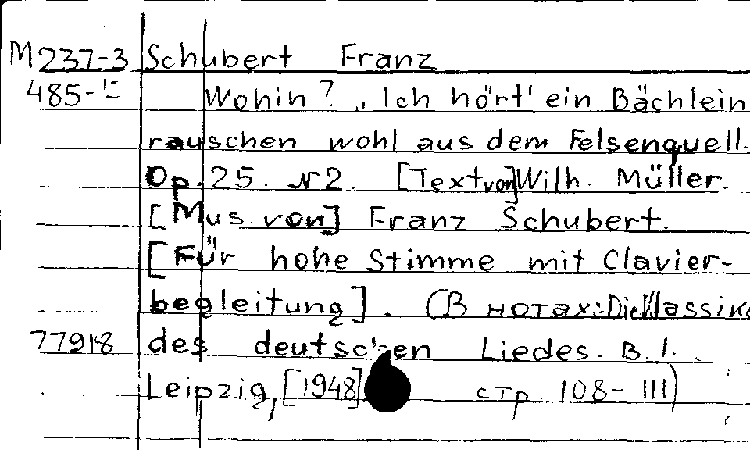 M237-3 Schubert Franz
485- Wohin? „Ich hört' ein Bächlein
rauschen wohl aus dem Felsenquell.
Op. 25. N2. [Text von] Wilh. Müller.
[Mus von] Franz Schubert.
[Für hohe Stimme mit Clavier-
begleitung]. (В нотах: Die Klassik
77918 des deutschen Liedes. B. I.
Leipzig, [1948] стр 108-111)